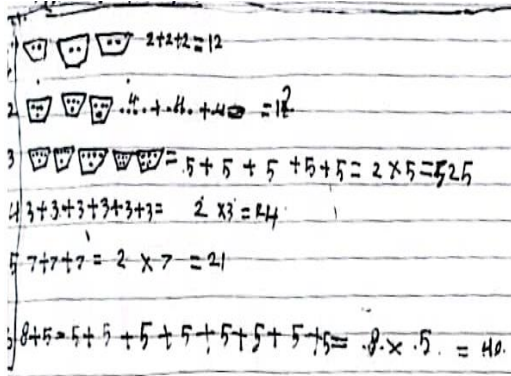 2+2+2=12
2 .4.+.4.+4 =12
3 =5+5+5+5+5=2×5=525
4 3+3+3+3+3+3= 2×3=24
5 7+7+7=2×7=21
8+5=5+5+5+5+5+5+5+5=.8.×.5.=40.